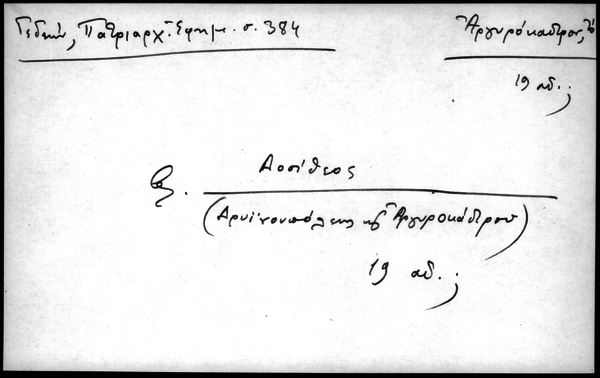 Γεδεών, Πατριαρχ. Ἐφημ. σ. 384
Ἀργυρόκαστρον, τὸ
19 αἰ. ;
Δοσίθεος
(Δρυϊνουπόλεως κ Ἀργυροκάστρου)
19 αἰ. ;